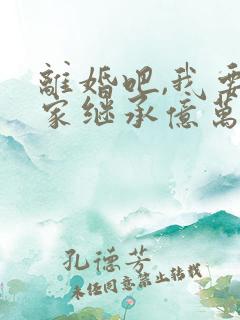 離婚吧,我要
家继承億萬
孔德芳
未经同意禁止转载